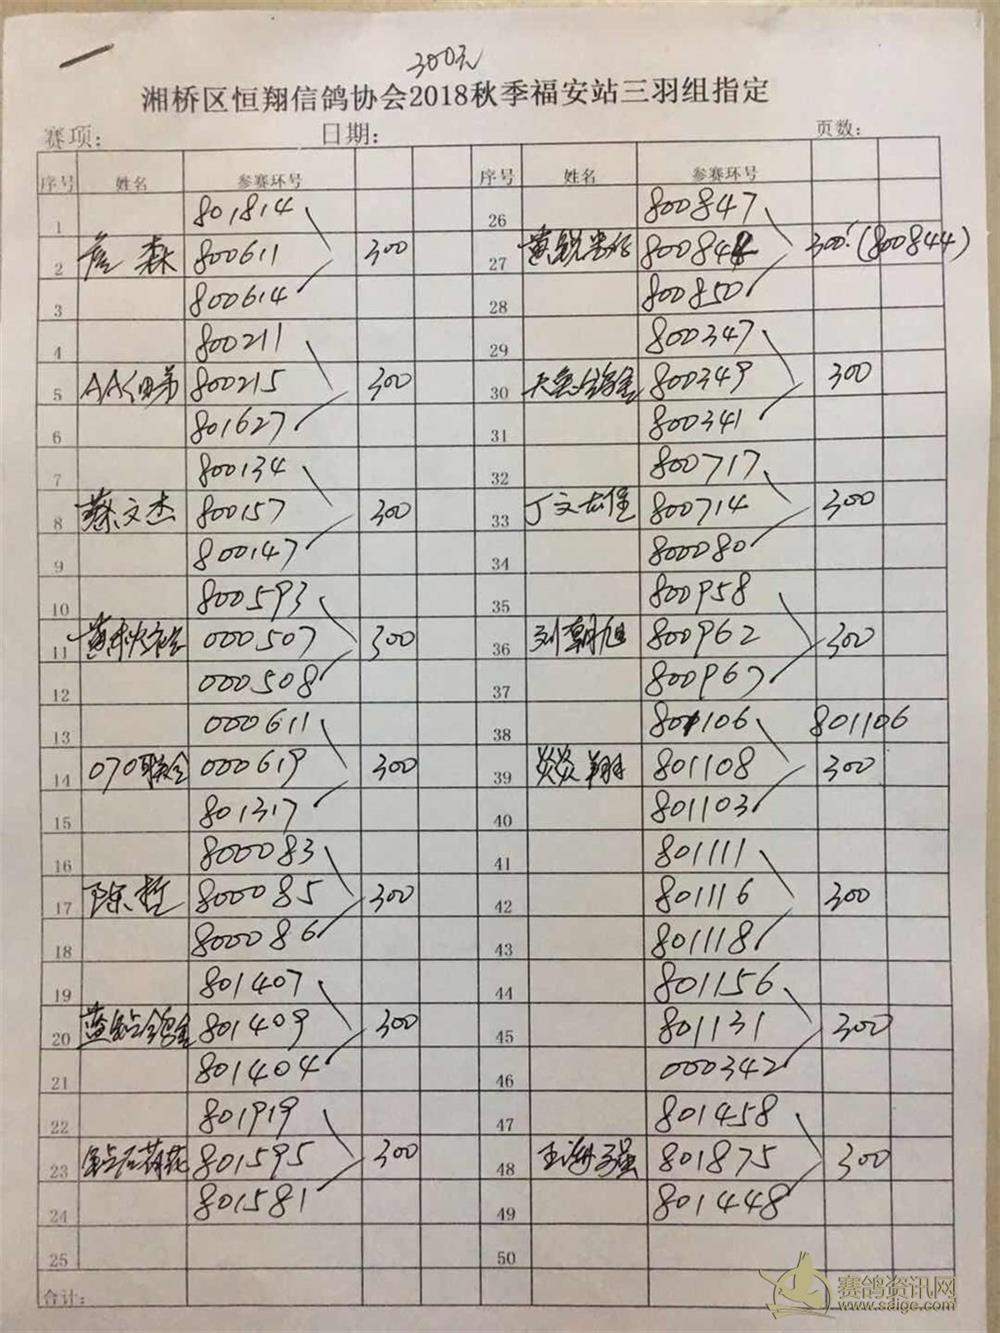 300元
湘桥区恒翔信鸽协会2018秋季福安站三羽组指定
赛项: 日期: 页数:
序号 姓名 参赛环号 序号 姓名 参赛环号
1 801814 26 800847
2 詹森 800611 300 27 80084 300 (800844)
3 800614 28 800850
4 800211 29 800347
5 AA细弟 800215 300 30 800349 300
6 801627 31 800341
7 800134 32 800717
8 蔡文杰 800157 300 33 丁文 800714 300
9 800147 34 800080
10 800593 35 800958
11 000507 300 36 刘朝旭 800962 300
12 000508 37 800967
13 000611 38 801106 801106
14 070联合 000619 300 39 焱焱翔 801108 300
15 801317 40 801103
16 800083 41 801111
17 陈哲 800085 300 42 801116 300
18 800086 43 801118
19 801407 44 801156
20 蓝钻鸽舍 801409 300 45 801131 300
21 801404 46 000342
22 801919 47 801458
23 801595 300 48 王海强 801875 300
24 801581 49 801448
25 50
合计:
赛鸽资讯网
www.saige.com